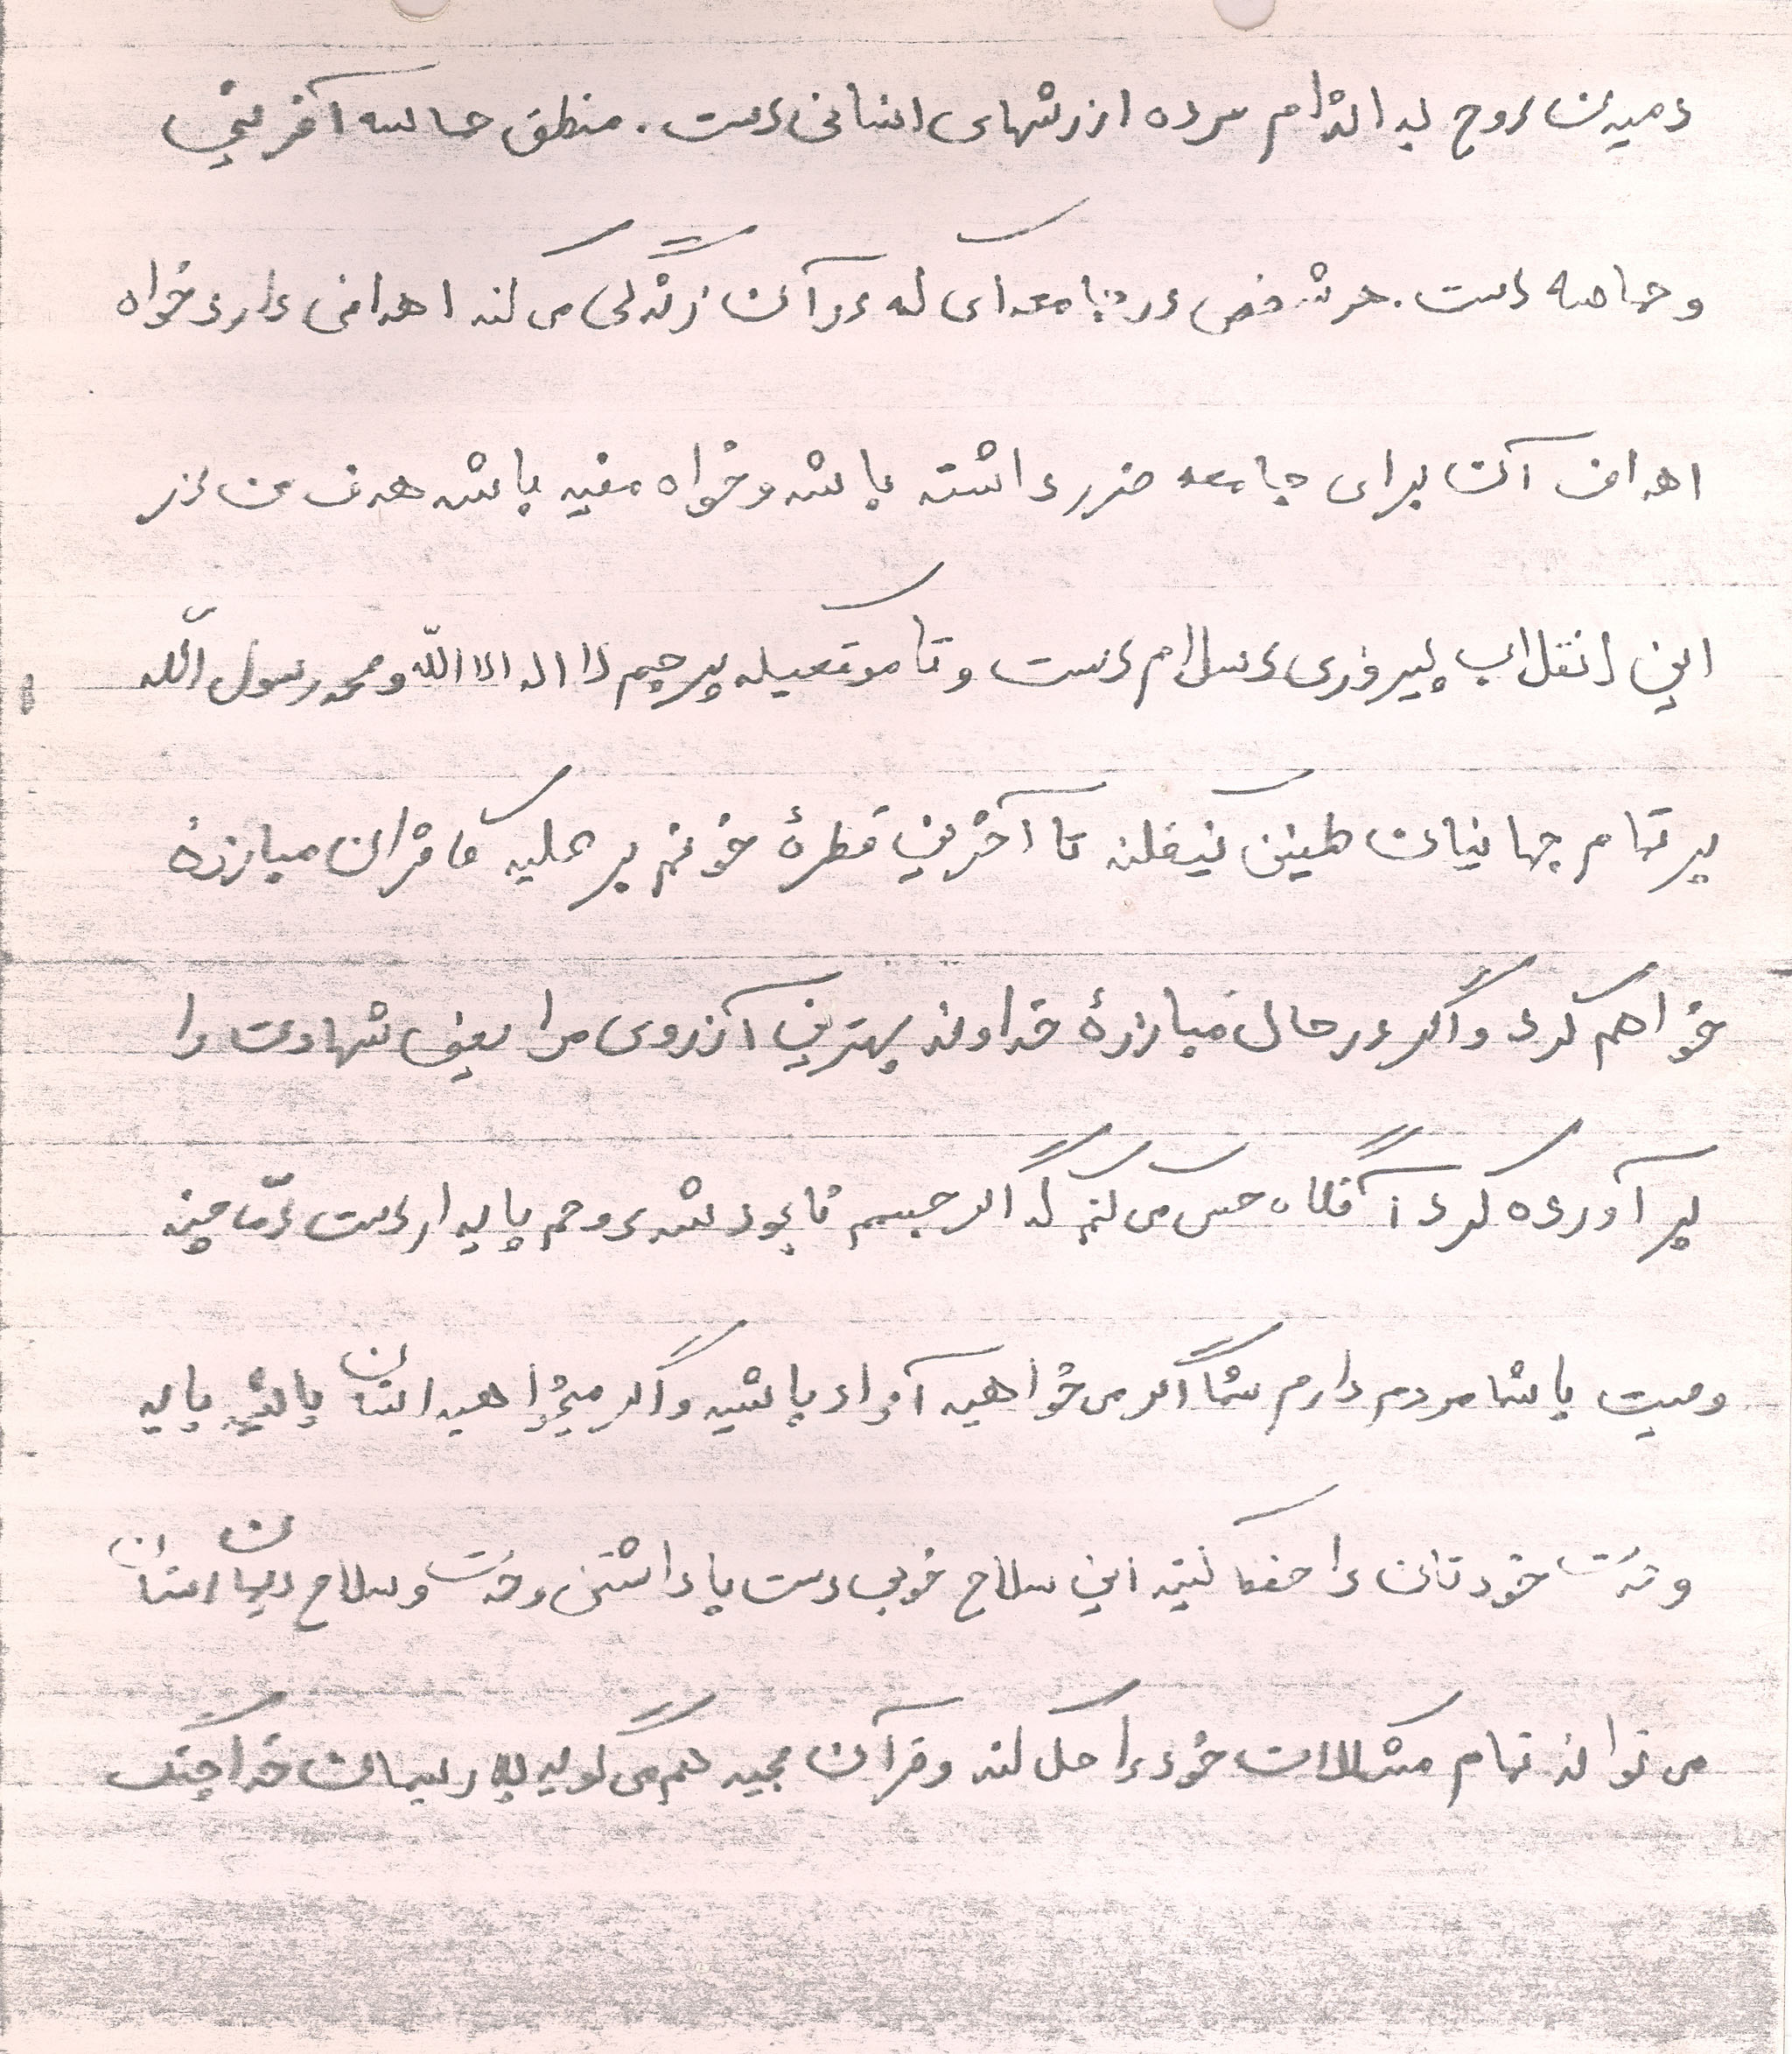 دمیدن روح به اندام مرده ارزشهای انسانی است. منطق حماسه آفرینی
و حماسه است. هر شخص در جامعه‌ای که در آن زندگی می کند اهدافی دارد خواه
اهداف آن برای جامعه ضرر داشته باشد و خواه مفید باشد هدف من از
این انقلاب پیروزی اسلام است و تا موقعیکه پرچم لا اله الا الله و محمد رسول الله
بر تمام جهانیان طنین نیفکند تا آخرین قطرهٔ خونم بر علیه کافران مبارزهٔ
خواهم کرد و اگر در حال مبارزهٔ خداوند بهترین آرزوی مرا یعنی شهادت را
بر آورده کرد آنگاه حس می کنم که اگر جسمم نابود شد روحم پایدار است امّا چند
وصیت با شما مردم دارم شما اگر می خواهید آزاد باشید و اگر میخواهید انسان باشید باید
وحدت خودتان را حفظ کنید این سلاح خوبی است با داشتن وحدت و سلاح ایمان انسان
می تواند تمام مشکلات خود را حل کند و قرآن مجید هم می گوید به ریسمان خدا چنگ